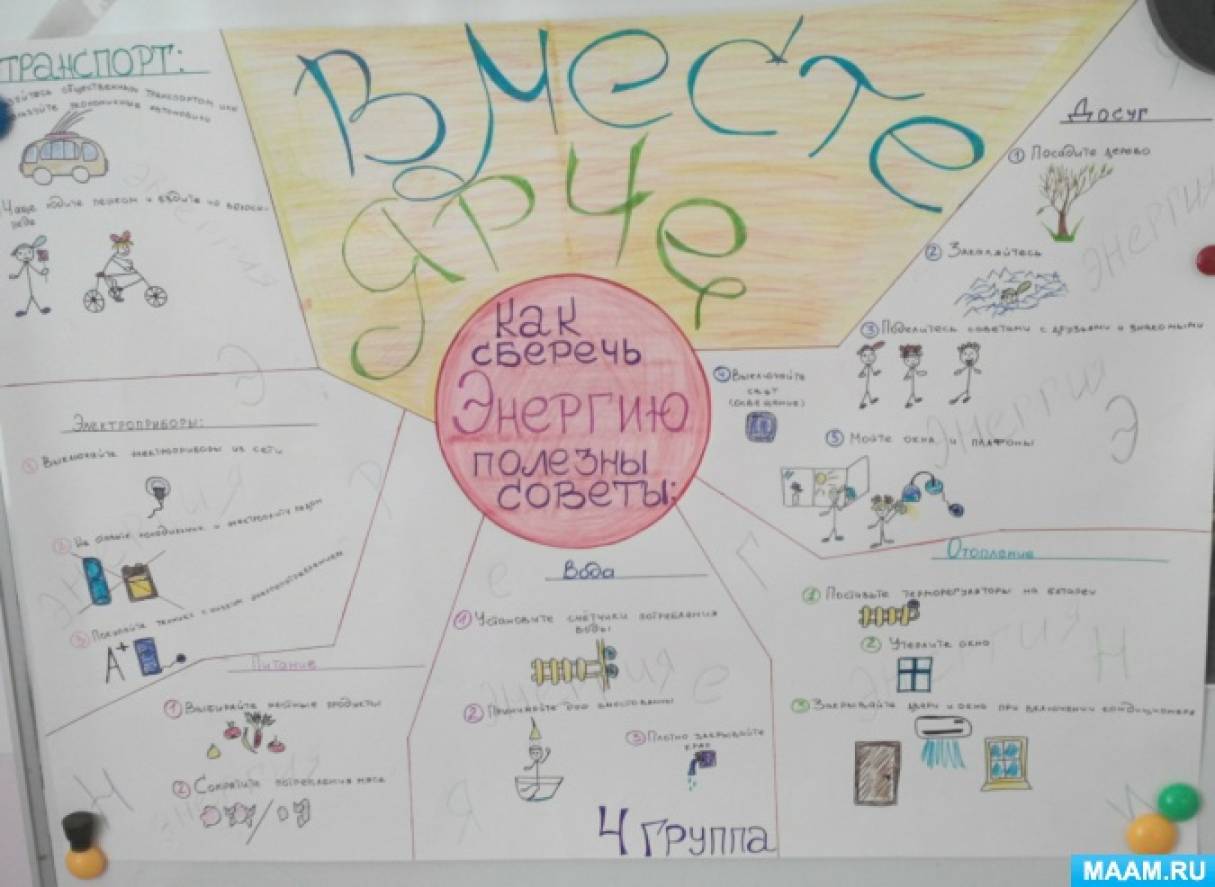 ВМЕСТЕ
ЯРЧЕ
КАК
СБЕРЕЧЬ
ЭНЕРГИЮ
ПОЛЕЗНЫ
СОВЕТЫ:
ТРАНСПОРТ:
общественным транспортом или
экономичные автомобили
Чаще ходите пешком и ездите на велоси-
педе
Электроприборы:
① Выключайте электроприборы из сети
② Не ставьте холодильник и рядом
③ Покупайте технику с низким энергопотреблением
A+
Питание
① Выбирайте продукты
② Сократите потребления мяса
Вода
① Установите счётчики потребления
воды
② Принимайте душ вместо ванны
③ Плотно закрывайте
кран
4 ГРУППА
Досуг
① Посадите дерево
② Закаляйтесь
③ Поделитесь советами с друзьями и знакомыми
④ Выключайте
свет
(освещение)
⑤ Мойте окна и плафоны
Отопление
① Поставьте терморегуляторы на батареи
② Утеплите окно
③ Закрывайте двери и окно при включении кондиционера
Энергия
Энергия
Энергия
Энергия
Э
Э
Н
Г
Я
MAAM.RU